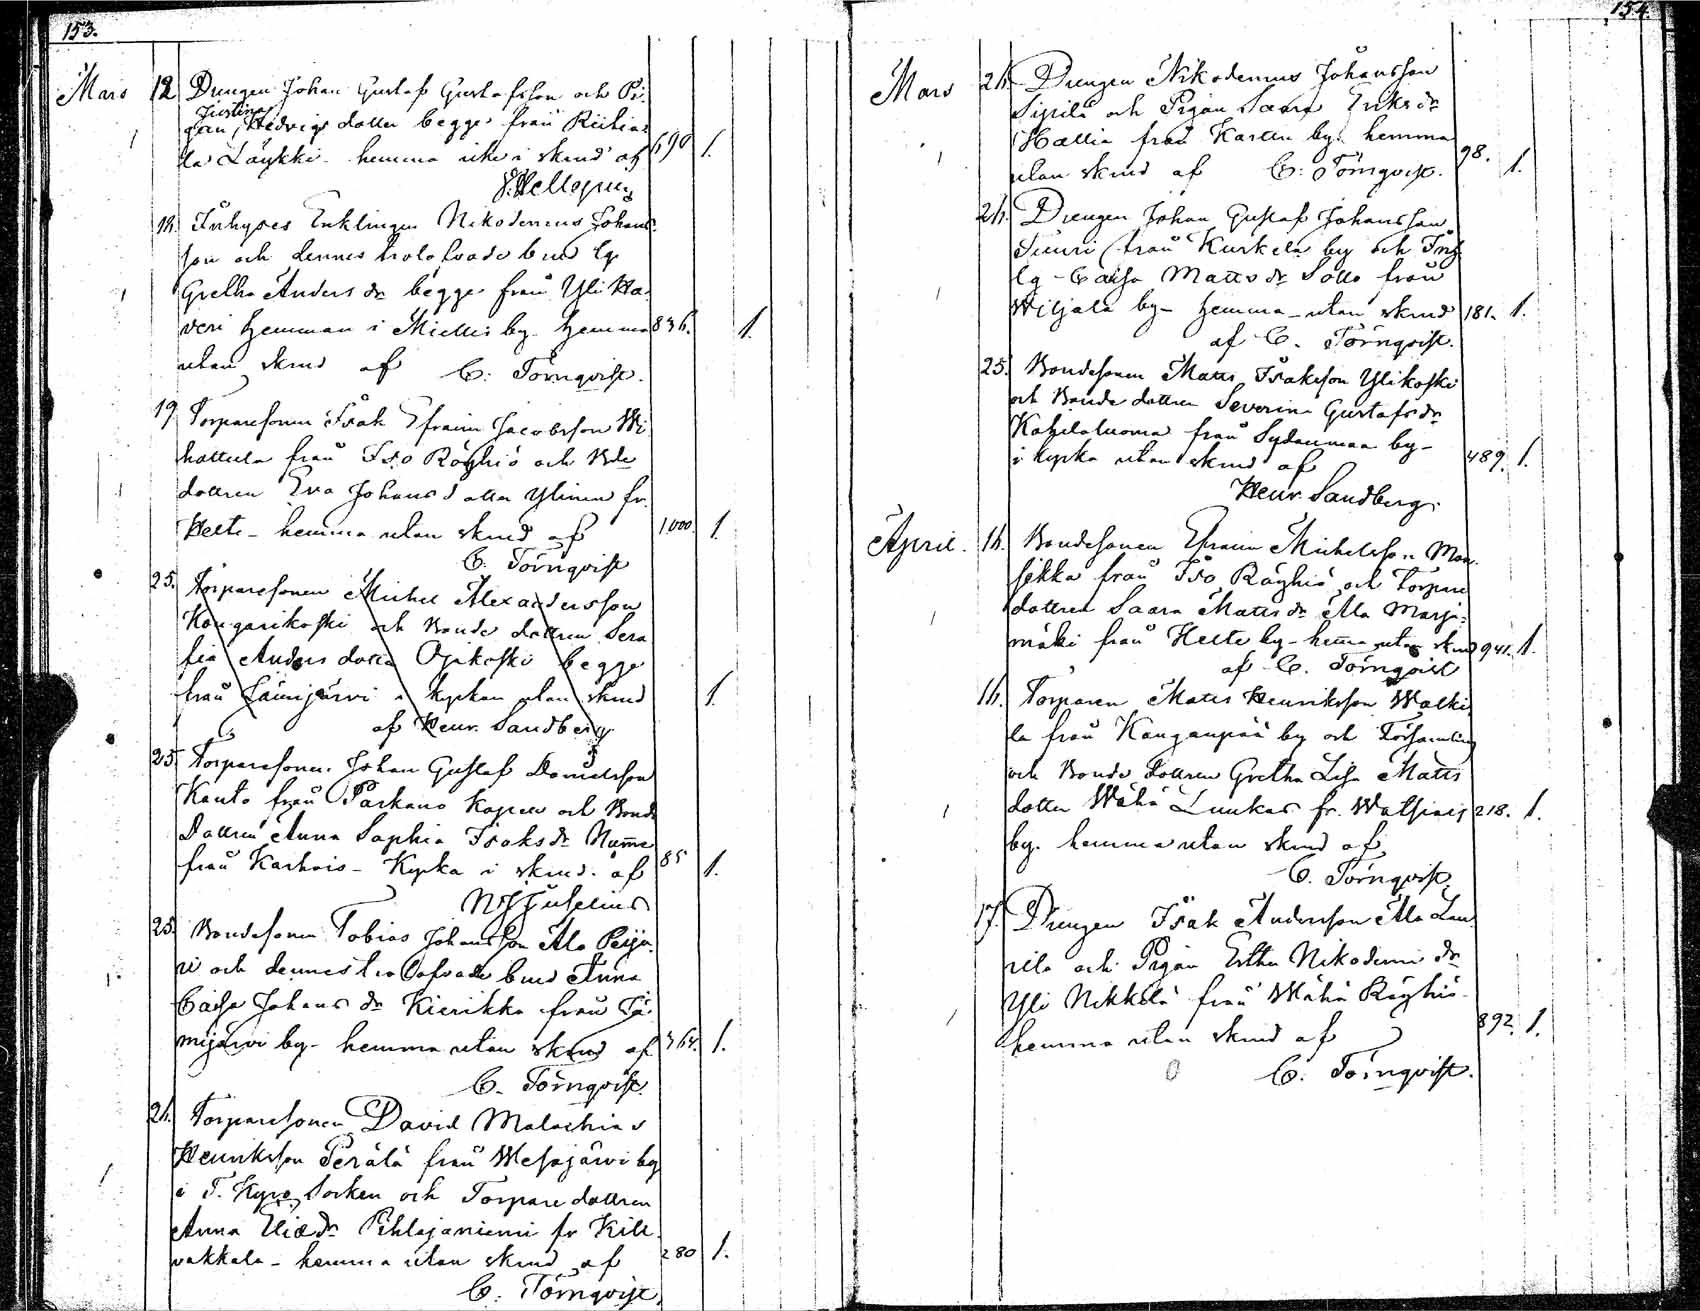 153.
Mars 12 Drengen Johan Gustaf Gustafsson och Pi-
Justina
gan Hedvigs dotter begge från Riihias
la Löykki - hemma icke i skrud af 690 1.
Inhyses Enklingen Nikodemus Johans
son och dennes trolofvade brud Ip
Gretha Anders dr begge från Yli Ha-
veri hemman i Miettis by - hemma 836. 1.
utan skrud af C. Törnqvist.
19 Torparesonen Isak Efraim Jacobsson Wi
hattula från Iso Röyhiö och Bde
dottren Eva Johans dotter Ylinen fr.
Helte - hemma utan skrud af 1000 1.
C. Törnqvist
25. Torparesonen Michel Alexandersson
Kangarikoski och Bonde dottren Sera
fia Anders dotter Ojikoski begge
från Jämijärvi i kyrkan utan skrud 1.
af Henr. Sandberg
25. Torparesonen Johan Gustaf Danielsson
Kanto från Parkano Kapell och Bonde
Dottren Anna Sophia Isaks dr Numme
från Karhois - Kyrka i skrud. af 85 1.
25. Bondesonen Tobias Johansson Ala Peija-
ri och dennes trolofvade brud Anna
Caisa Johans dr Kierikka från Jä-
mijärvi by - hemma utan skrud af 364. 1.
C. Törnqvist.
26. Torparesonen David Malachias
Henriksson Perälä från Wesajärvi by
i T. Kyro Socken och Torpare dottren
Anna Elias dr Pihlajaniemi fr Kill
vakkala - hemma utan skrud af 280 1.
C. Törnqvist.
154.
Mars 26. Drengen Nikodemus Johansson
Sipilä och Pigan Saara Eriks dr
Hallia från Karttu by. hemma
utan skrud af C. Törnqvist. 98. 1.
26. Drengen Johan Gustaf Johansson
Tuuri från Kurkela by och Inh
Ip - Caisa Matts dr Sotto från
Wiljala by - hemma - utan skrud 181. 1.
af C. Törnqvist.
25. Bondesonen Matts Isaksson Ylikoski
och Bonde dottren Severina Gustafs dr
Kahilaluoma från Sydänmaa by -
i kyrka utan skrud af 489. 1.
Henr. Sandberg.
April. 16. Bondesonen Efraim Michelsson Man-
sikka från Iso Röyhiö och Torpare
dottren Saara Matts dr Ala Marja-
mäki från Helte by - hemma utan skrud 941. 1.
af C. Törnqvist
16. Torparen Matts Henriksson Walki
la från Kangaspää by och Församling
och Bonde dottren Gretha Lisa Matts
dotter Wähä Luukas fr. Watsiais 218. 1.
by. hemma utan skrud af
C. Törnqvist.
17. Drengen Isak Andersson Ala Lau
rila och Pigan Esther Nikodemi dr
Yli Nikkilä från Wähä Röyhiö
hemma utan skrud af 892. 1.
C. Törnqvist.